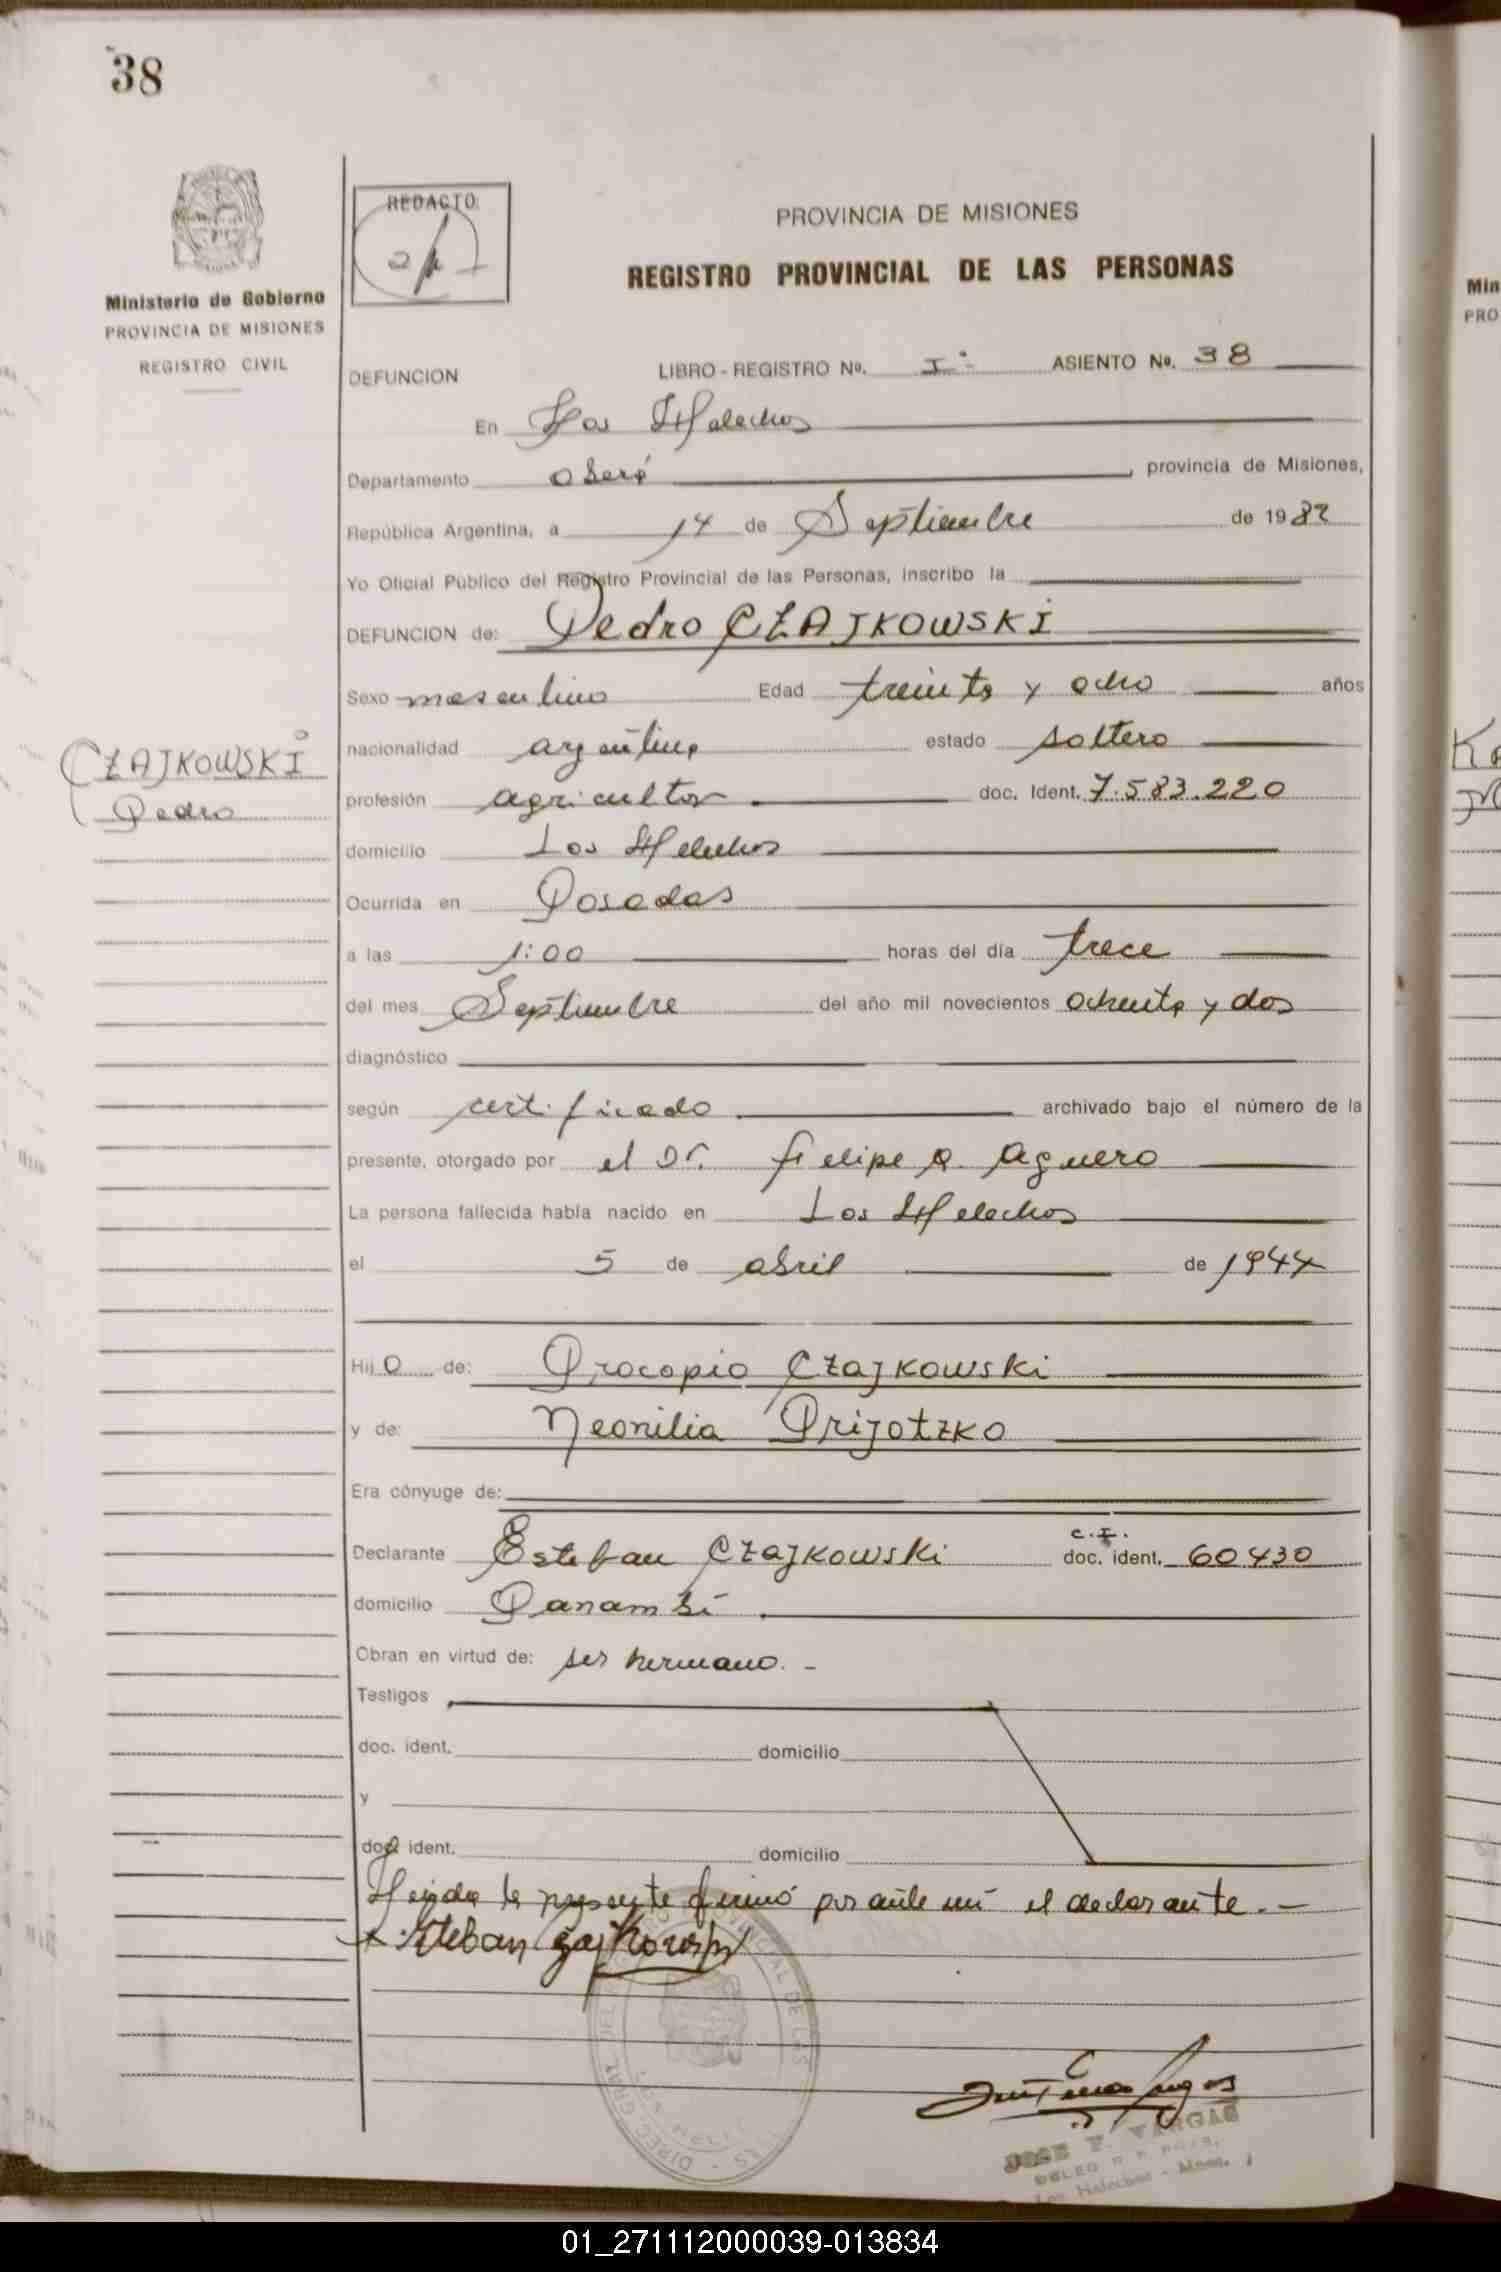 38
REDACTO:
PROVINCIA DE MISIONES
REGISTRO PROVINCIAL DE LAS PERSONAS
Ministerio de Gobierno
PROVINCIA DE MISIONES
REGISTRO CIVIL
DEFUNCION LIBRO - REGISTRO Nº. I ASIENTO Nº. 38
En Los Helechos
Departamento Oberá, provincia de Misiones,
República Argentina, a 14 de Septiembre de 1982
Yo Oficial Público del Registro Provincial de las Personas, inscribo la
DEFUNCION de: Pedro CZAJKOWSKI
Sexo masculino Edad treinta y ocho años
CZAJKOWSKI
Pedro
nacionalidad argentina estado soltero
profesión agricultor doc. Ident. 7.583.220
domicilio Los Helechos
Ocurrida en Posadas
a las 1:00 horas del día trece
del mes Septiembre del año mil novecientos ochenta y dos
diagnóstico
según certificado archivado bajo el número de la
presente, otorgado por el Dr. Felipe A. Aguero
La persona fallecida había nacido en Los Helechos
el 5 de abril de 1944
Hijo de: Procopio Czajkowski
y de: Neonilia Prijotzko
Era cónyuge de:
Declarante Esteban Czajkowski C.I. doc. ident. 60430
domicilio Panambí
Obran en virtud de: ser hermano. -
Testigos
doc. ident. domicilio
y
doc. ident. domicilio
Leída la presente firmó por ante mí el declarante. -
JOSE F. VARGAS
Los Helechos - Mnes.
Min
PRO
01_271112000039-013834